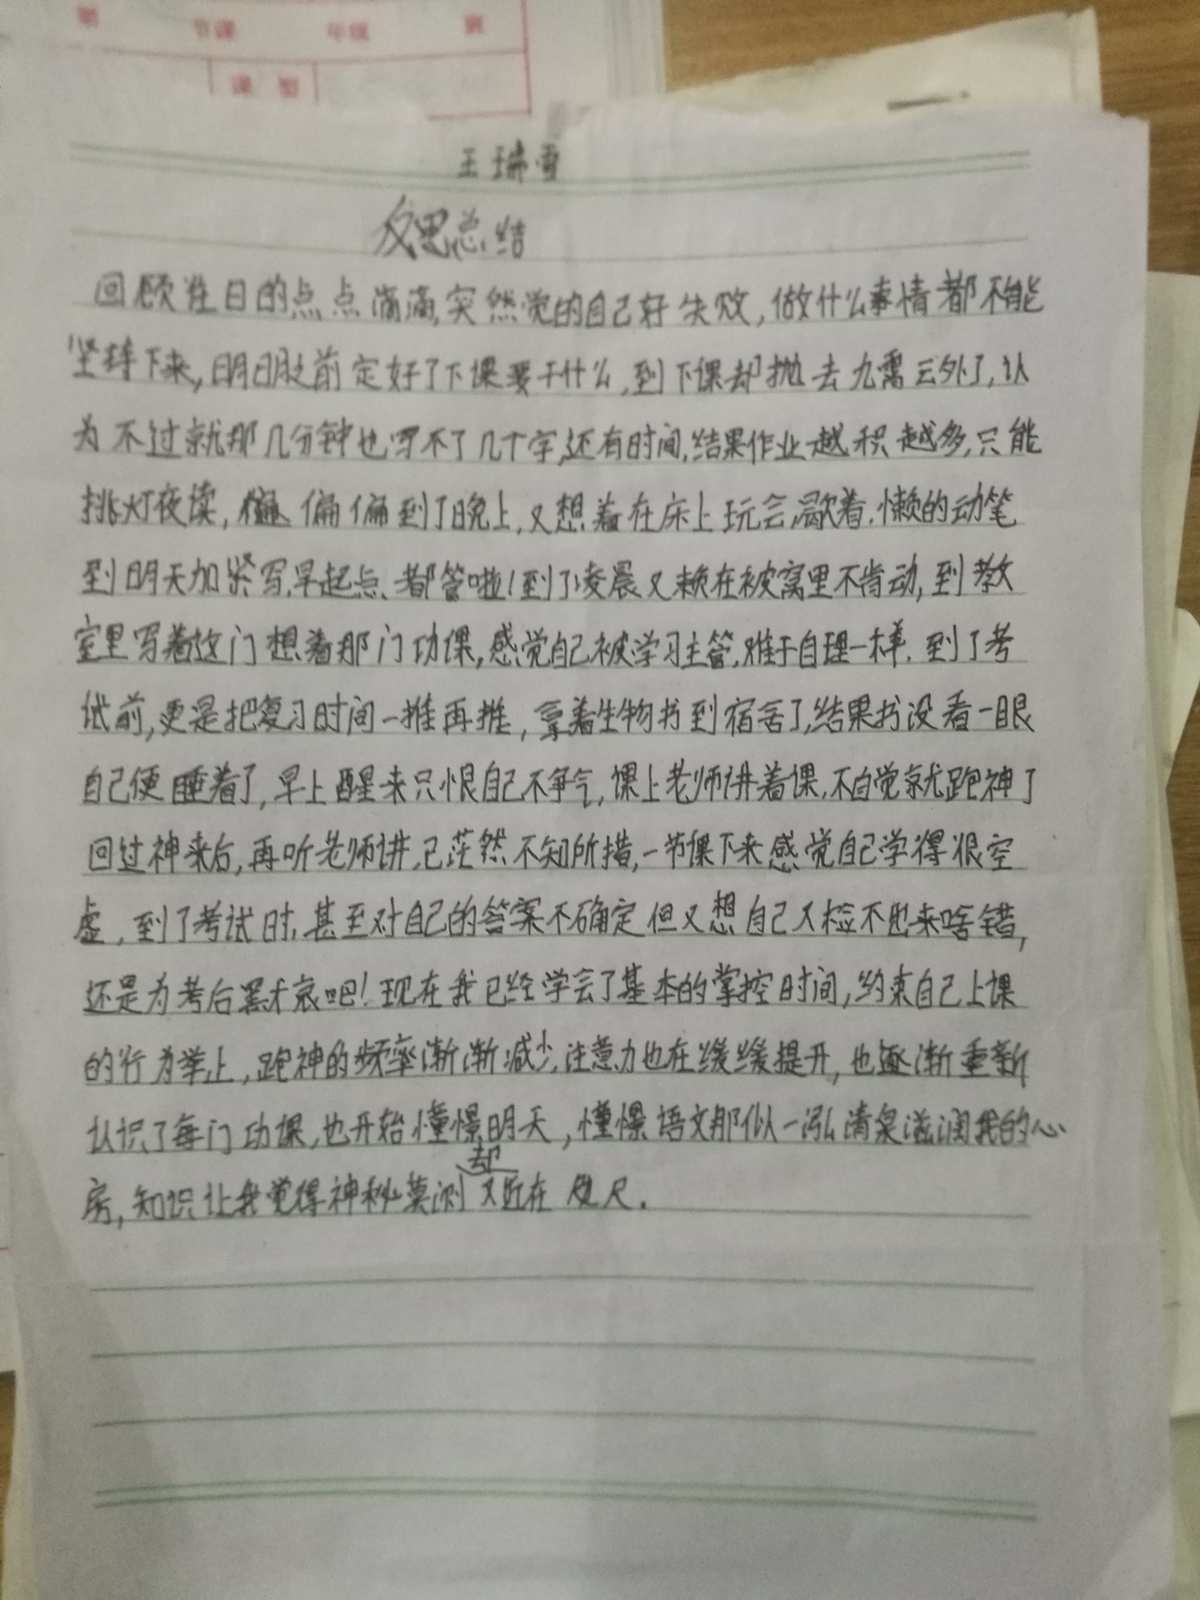 第 节课 年级 班
课型
王瑞雪
反思总结
回顾往日的点点滴滴,突然觉的自己好失败,做什么事情都不能
坚持下来,明明之前定好了下课要干什么,到下课却抛去九霄云外了,认
为不过就那几分钟也写不了几十字,还有时间,结果作业越积越多,只能
挑灯夜读,偏偏到了晚上,又想着在床上玩会,歇着,懒的动笔
到明天加紧写,早起点,都管啦!到了凌晨又赖在被窝里不肯动,到教
室里写着这门想着那门功课,感觉自己被学习主管,难于自理一样.到了考
试前,更是把复习时间一推再推,拿着生物书到宿舍了,结果书没看一眼
自己便睡着了,早上醒来只恨自己不争气,课上老师讲着课,不自觉就跑神了
回过神来后,再听老师讲,已茫然不知所措,一节课下来感觉自己学得很空
虚,到了考试时,甚至对自己的答案不确定但又想自己又检不出来啥错,
还是为考后默哀吧!现在我已经学会了基本的掌控时间,约束自己上课
的行为举止,跑神的频率渐渐减少,注意力也在缓缓提升,也逐渐重新
认识了每门功课,也开始憧憬明天,憧憬语文那似一泓清泉滋润我的心
房,知识让我觉得神秘莫测却又近在咫尺.